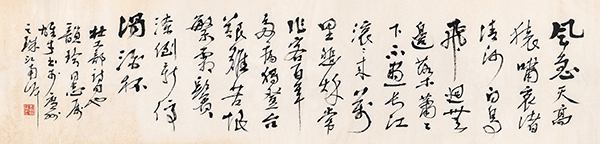 風急天高
猿嘯哀渚
清沙白鳥
飛迴無
邊落木蕭〻
下不盡長江
滾〻來萬
里悲秋常
作客百年
多病獨登台
艱難苦恨
繁霜鬢
潦倒新停
濁酒杯
杜工部詩句也
韻珍同志屬
雄才書於廣州
之珠江南岸